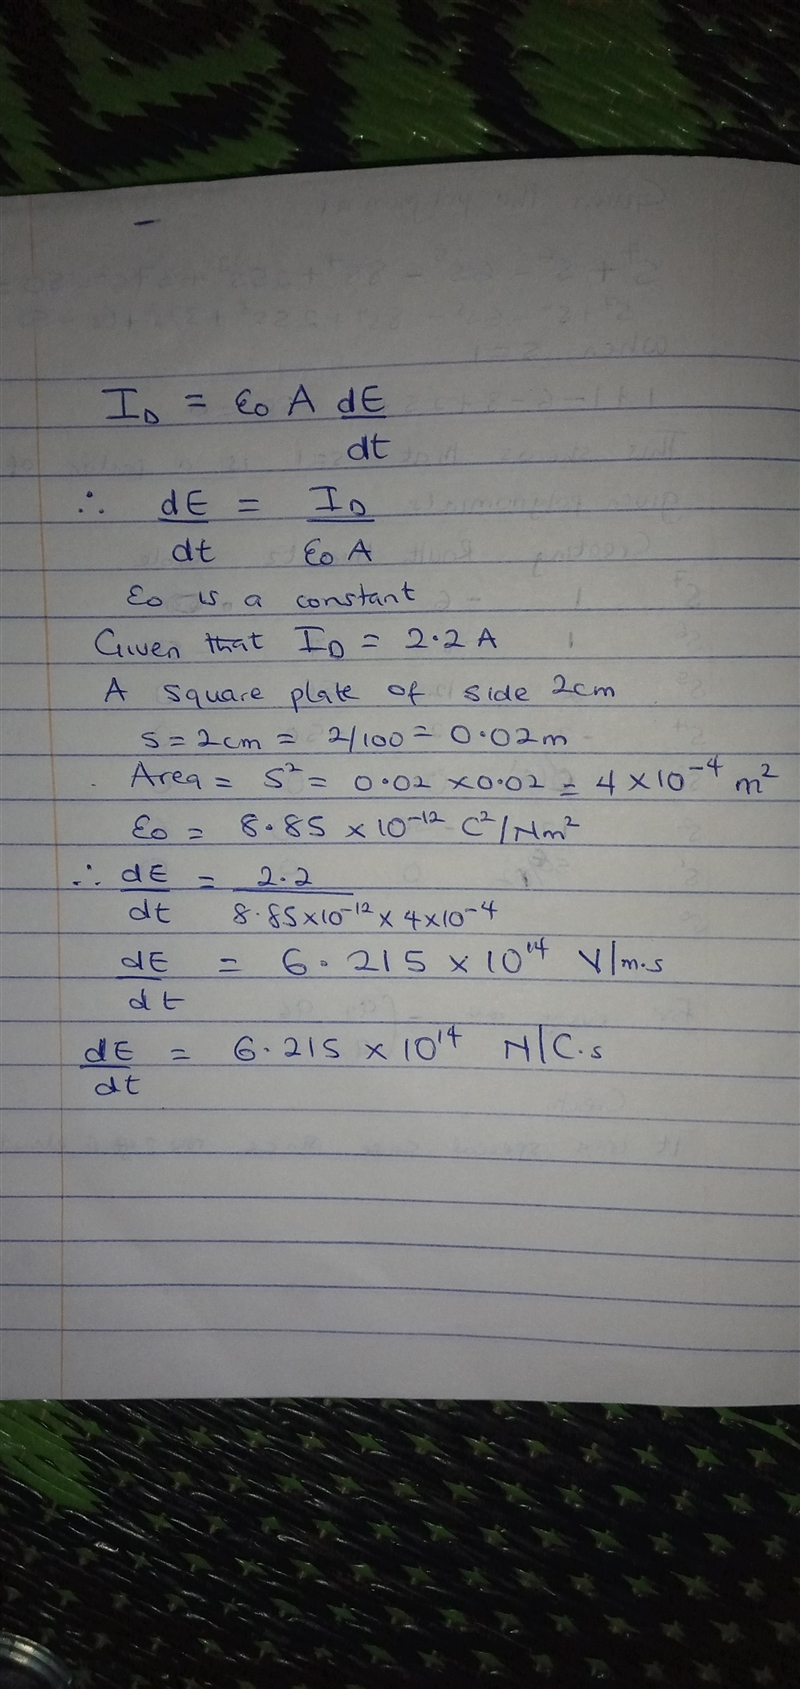 I_D = ε0 A dE/dt
∴ dE/dt = I_D/ε0 A
ε0 is a constant
Given that I_D = 2.2 A
A square plate of side 2cm
S = 2cm = 2/100 = 0.02m
Area = S² = 0.02 x0.02 = 4 x10⁻⁴ m²
ε0 = 8.85 x10⁻¹² C²/Nm²
∴ dE/dt = 2.2/8.85x10⁻¹² x 4x10⁻⁴
dE/dt = 6.215 x 10¹⁴ V/m.s
dE/dt = 6.215 x 10¹⁴ N/C.s